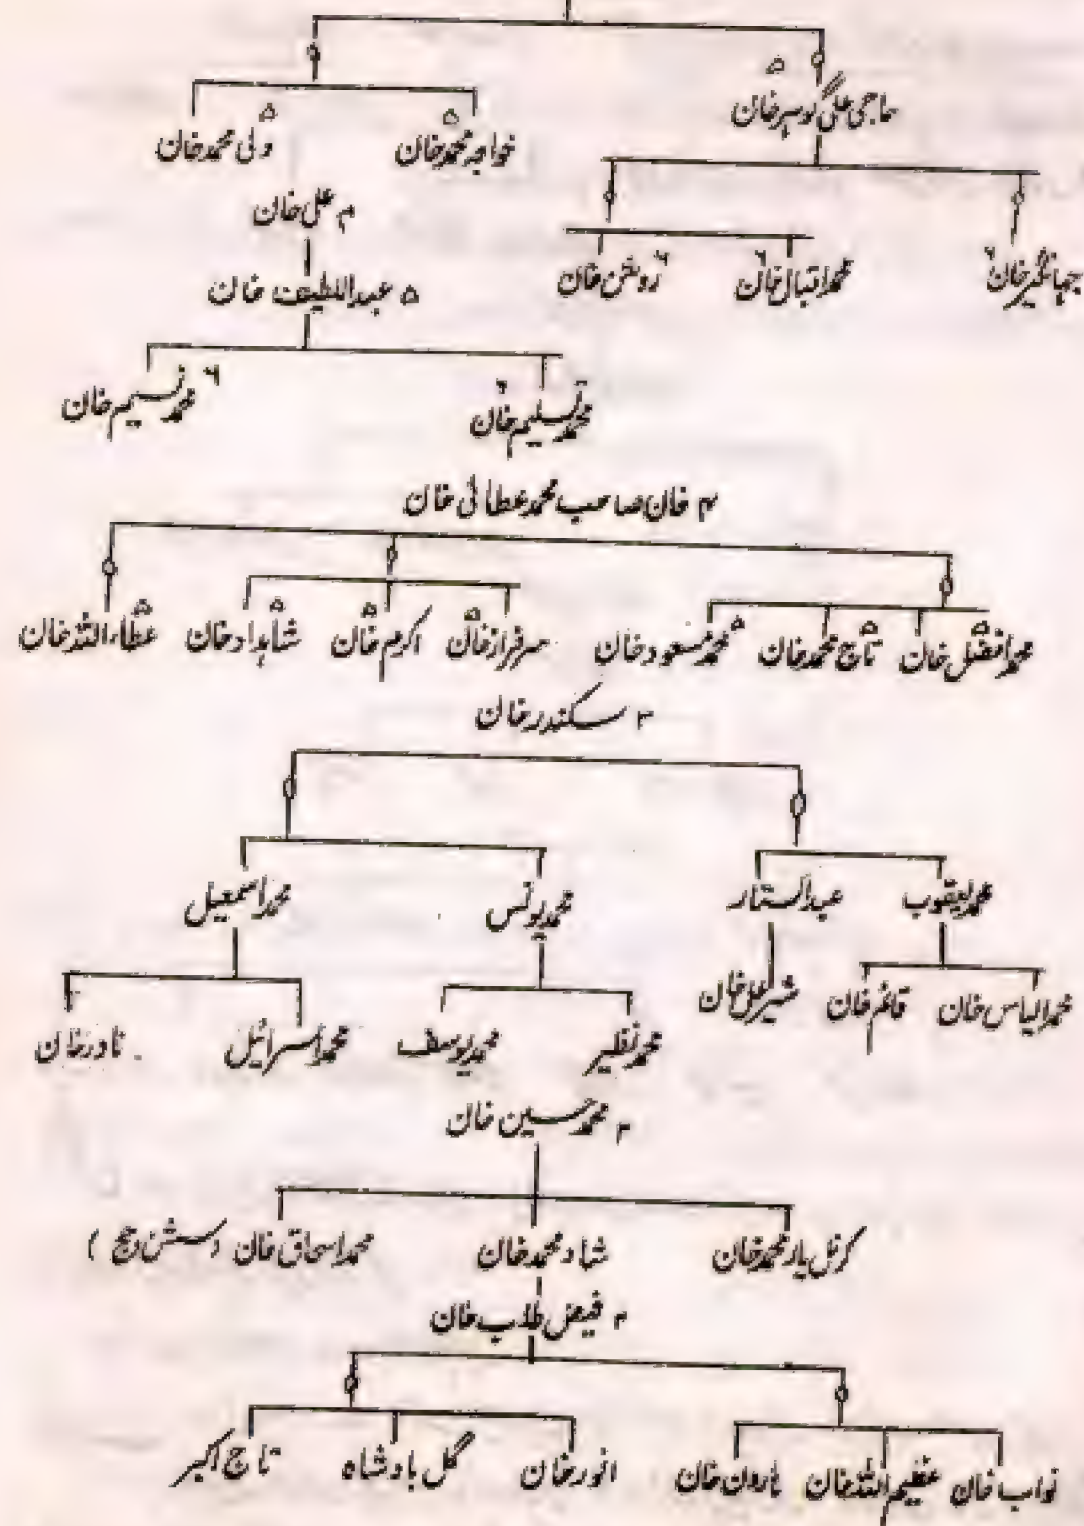 حاجی علی گوہر خان ۵
خواجہ محمد خان ۵ ولی محمد خان ۵
جہانگیر خان ۶ محمد اقبال خان ۶ روشن خان ۶
۴ علی خان
۵ عبداللطیف خان
محمد تسلیم خان ۶ محمد نسیم خان ۶
۴ خان صاحب محمد عطائی خان
محمد افضل خان ۵ تاج محمد خان ۵ محمد مسعود خان ۵ سرفراز خان ۵ اکرم خان ۵ شاہداد خان ۵ عطاء اللہ خان ۵
۴ سکندر خان
محمد یعقوب عبدالستار محمد یونس محمد اسمعیل
محمد الیاس خان قائم خان شیر علی خان محمد نظیر محمد یوسف محمد اسرائیل نادر خان
۴ محمد حسین خان
کرنل یار محمد خان شاد محمد خان محمد اسحاق خان (سشن جج)
۴ فیض طلب خان
نواب خان عظیم اللہ خان ہارون خان انور خان گل بادشاہ تاج اکبر